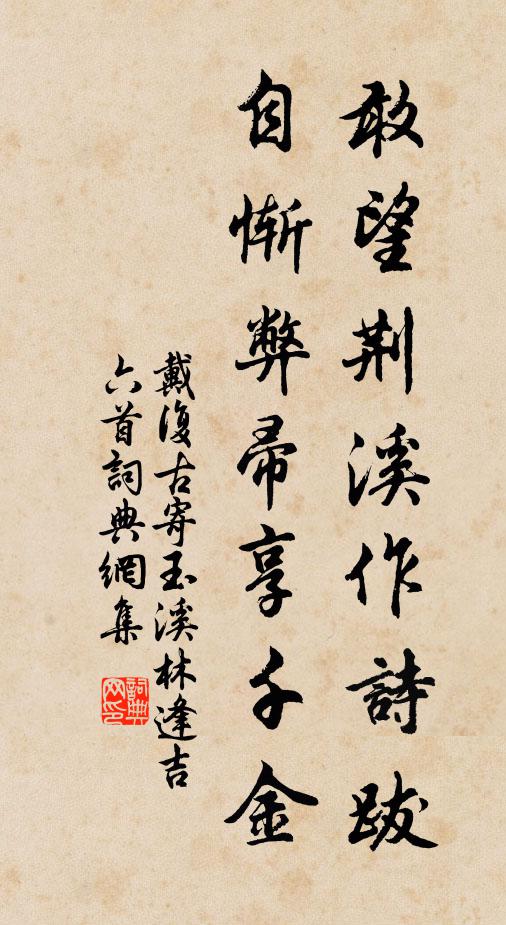 敢望荆溪作詩跋
自慚弊帚享千金
戴復古寄玉溪林逢吉
六首詞典網集
詞典網印